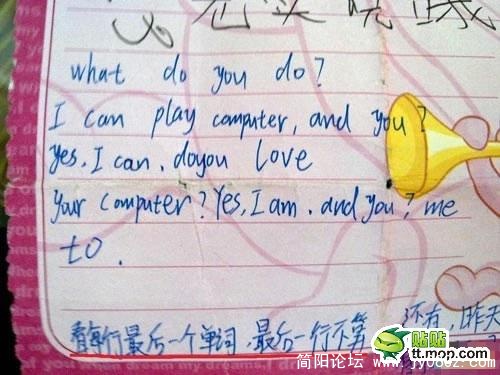 what do you do?
I can play computer, and you?
yes, I can. doyou love
Your computer? Yes, I am. and you? me
to.
看每行最后一个单词,最后一行不算 还有,昨天
贴贴
tt.mop.com
简阳论坛